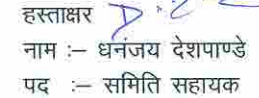 हस्ताक्षर
नाम :– धनंजय देशपाण्डे
पद :– समिति सहायक